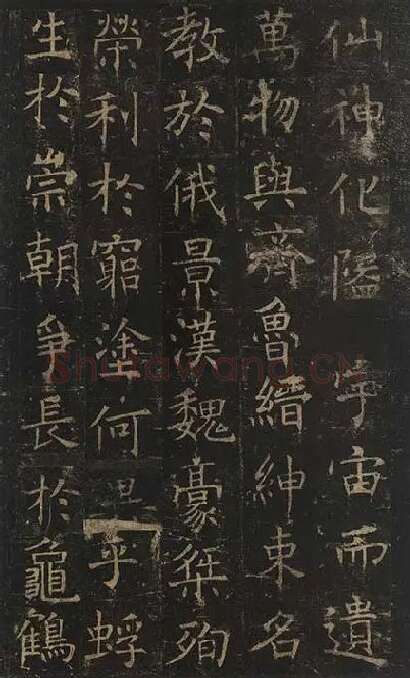 仙神化隘宇宙而遺
萬物與齊魯縉紳束名
教於俄景漢魏豪桀殉
榮利於窮塗何異乎蜉
生於崇朝爭長於龜鶴
Shufawang.CN